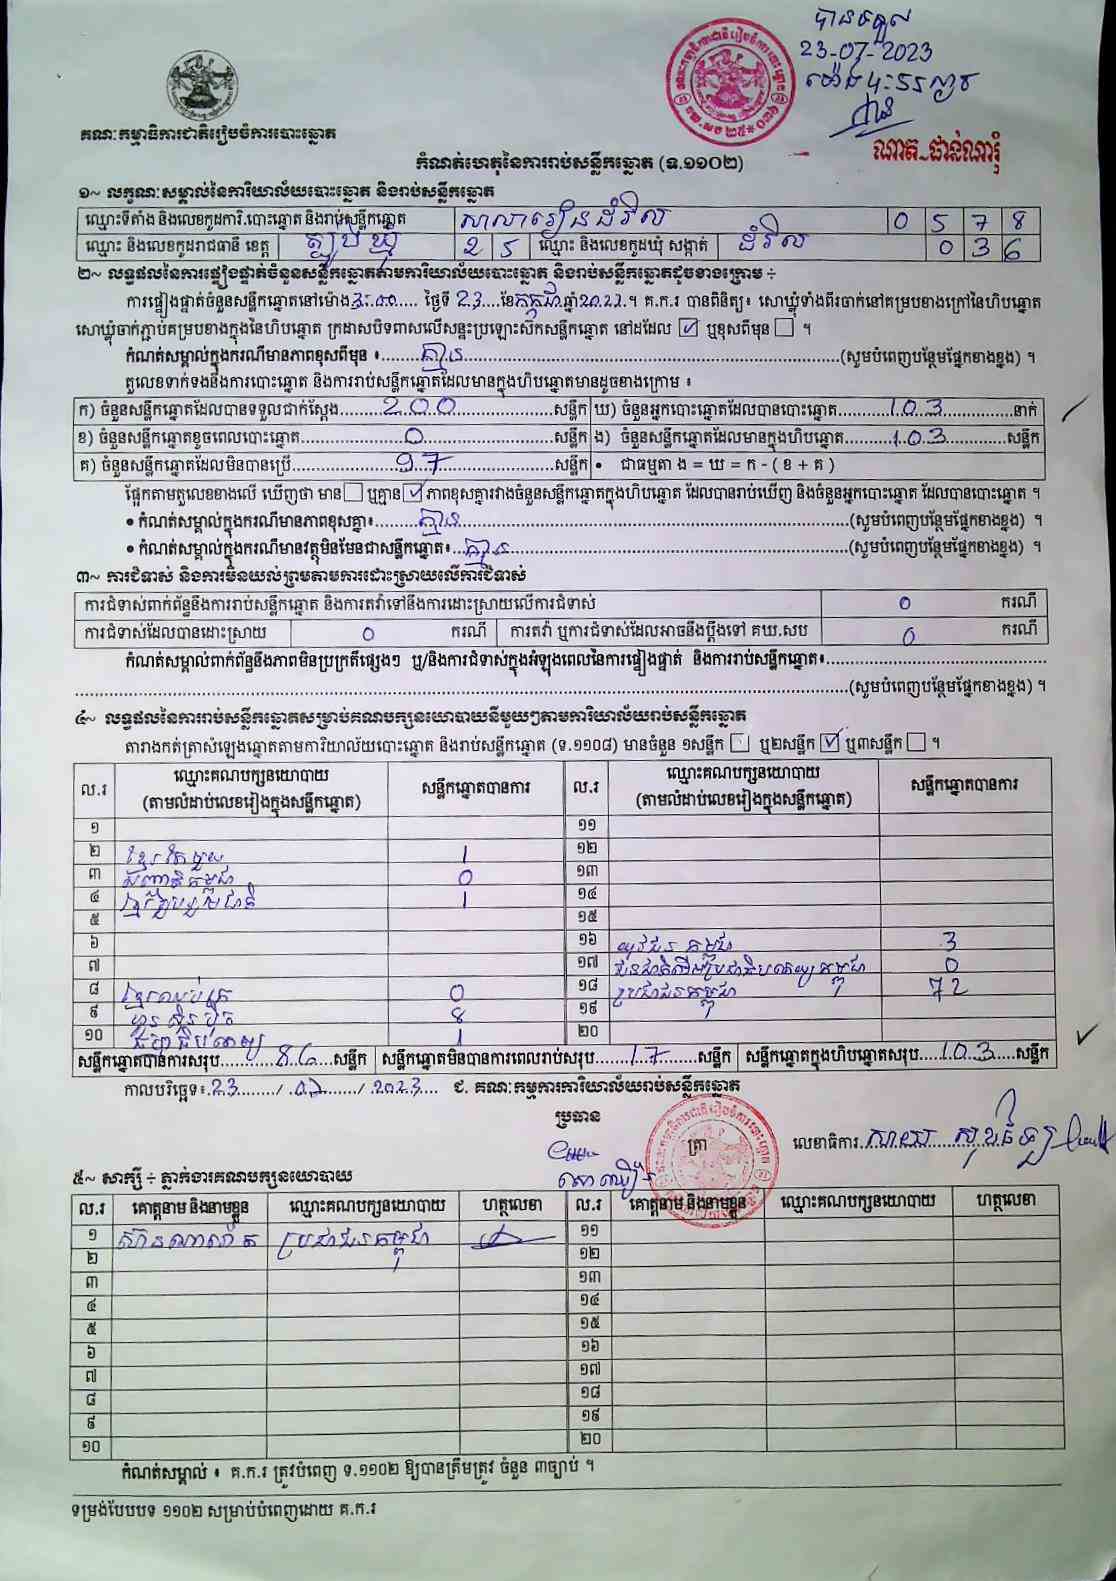 បានទទួល
23-07-2023
គណៈកម្មាធិការជាតិរៀបចំការបោះឆ្នោត
ណាត-ផាន់ណារុំ
កំណត់ហេតុនៃការរាប់សន្លឹកឆ្នោត (ទ.១១០២)
១~ លក្ខណៈសម្គាល់នៃការិយាល័យបោះឆ្នោត និងរាប់សន្លឹកឆ្នោត
ឈ្មោះទីតាំង និងលេខកូដការិ.បោះឆ្នោត និងរាប់សន្លឹកឆ្នោត សាលារៀនដំរិល 0 5 7 8
ឈ្មោះ និងលេខកូដរាជធានី ខេត្ត ត្បូងឃ្មុំ 2 5 ឈ្មោះ និងលេខកូដឃុំ សង្កាត់ ដំរិល 0 3 6
២~ លទ្ធផលនៃការផ្ទៀងផ្ទាត់ចំនួនសន្លឹកឆ្នោតតាមការិយាល័យបោះឆ្នោត និងរាប់សន្លឹកឆ្នោតដូចខាងក្រោម ÷
ការផ្ទៀងផ្ទាត់ចំនួនសន្លឹកឆ្នោតនៅម៉ោង 3:00 ថ្ងៃទី 23 ខែ កក្កដា ឆ្នាំ 2023 ។ គ.ក.រ បានពិនិត្យ៖ សោឃ្លុំទាំងពីរចាក់នៅគម្របខាងក្រៅនៃហិបឆ្នោត
សោឃ្លុំចាក់ភ្ជាប់គម្របខាងក្នុងនៃហិបឆ្នោត ក្រដាសបិទពាសលើសន្ទះប្រឡោះសឹកសន្លឹកឆ្នោត នៅដដែល ☑ ឬខុសពីមុន ☐ ។
កំណត់សម្គាល់ក្នុងករណីមានភាពខុសពីមុន ៖ គ្មាន (សូមបំពេញបន្ថែមផ្នែកខាងខ្នង) ។
តួលេខទាក់ទងនឹងការបោះឆ្នោត និងការរាប់សន្លឹកឆ្នោតដែលមានក្នុងហិបឆ្នោតមានដូចខាងក្រោម ៖
ក) ចំនួនសន្លឹកឆ្នោតដែលបានទទួលជាក់ស្តែង 200 សន្លឹក ឃ) ចំនួនអ្នកបោះឆ្នោតដែលបានបោះឆ្នោត 103 នាក់
ខ) ចំនួនសន្លឹកឆ្នោតខូចពេលបោះឆ្នោត 0 សន្លឹក ង) ចំនួនសន្លឹកឆ្នោតដែលមានក្នុងហិបឆ្នោត 103 សន្លឹក
គ) ចំនួនសន្លឹកឆ្នោតដែលមិនបានប្រើ 97 សន្លឹក • ជាធម្មតា ង = ឃ = ក - ( ខ + គ )
ផ្អែកតាមតួលេខខាងលើ ឃើញថា មាន ☐ ឬគ្មាន ☑ ភាពខុសគ្នារវាងចំនួនសន្លឹកឆ្នោតក្នុងហិបឆ្នោត ដែលបានរាប់ឃើញ និងចំនួនអ្នកបោះឆ្នោត ដែលបានបោះឆ្នោត ។
• កំណត់សម្គាល់ក្នុងករណីមានភាពខុសគ្នា៖ គ្មាន (សូមបំពេញបន្ថែមផ្នែកខាងខ្នង) ។
• កំណត់សម្គាល់ក្នុងករណីមានវត្ថុមិនមែនជាសន្លឹកឆ្នោត៖ គ្មាន (សូមបំពេញបន្ថែមផ្នែកខាងខ្នង) ។
៣~ ការជំទាស់ និងការមិនយល់ព្រមតាមការដោះស្រាយលើការជំទាស់
ការជំទាស់ពាក់ព័ន្ធនឹងការរាប់សន្លឹកឆ្នោត និងការតវ៉ាទៅនឹងការដោះស្រាយលើការជំទាស់ 0 ករណី
ការជំទាស់ដែលបានដោះស្រាយ 0 ករណី ការតវ៉ា ឬការជំទាស់ដែលអាចនឹងប្តឹងទៅ គឃ.សប 0 ករណី
កំណត់សម្គាល់ពាក់ព័ន្ធនឹងភាពមិនប្រក្រតីផ្សេងៗ ឬ/និងការជំទាស់ក្នុងអំឡុងពេលនៃការផ្ទៀងផ្ទាត់ និងការរាប់សន្លឹកឆ្នោត៖
(សូមបំពេញបន្ថែមផ្នែកខាងខ្នង) ។
៤~ លទ្ធផលនៃការរាប់សន្លឹកឆ្នោតសម្រាប់គណបក្សនយោបាយនីមួយៗតាមការិយាល័យរាប់សន្លឹកឆ្នោត
តារាងកត់ត្រាសំឡេងឆ្នោតតាមការិយាល័យបោះឆ្នោត និងរាប់សន្លឹកឆ្នោត (ទ.១១០៨) មានចំនួន ១សន្លឹក ☐ ឬ២សន្លឹក ☑ ឬ៣សន្លឹក ☐ ។
ល.រ ឈ្មោះគណបក្សនយោបាយ (តាមលំដាប់លេខរៀងក្នុងសន្លឹកឆ្នោត) សន្លឹកឆ្នោតបានការ ល.រ ឈ្មោះគណបក្សនយោបាយ (តាមលំដាប់លេខរៀងក្នុងសន្លឹកឆ្នោត) សន្លឹកឆ្នោតបានការ
១ ១១
២ ខ្មែរតែមួយ 1 ១២
៣ សញ្ជាតិកម្ពុជា 0 ១៣
៤ ខ្មែររួបរួមជាតិ 1 ១៤
៥ ១៥
៦ ១៦ យុវជនកម្ពុជា 3
៧ ១៧ ជនជាតិដើមប្រជាធិបតេយ្យកម្ពុជា 0
៨ 0 ១៨ ប្រជាជនកម្ពុជា 72
៩ ហ្វ៊ុនស៊ិនប៉ិច 8 ១៩
១០ 1 ២០
សន្លឹកឆ្នោតបានការសរុប 86 សន្លឹក សន្លឹកឆ្នោតមិនបានការពេលរាប់សរុប 17 សន្លឹក សន្លឹកឆ្នោតក្នុងហិបឆ្នោតសរុប 103 សន្លឹក
កាលបរិច្ឆេទ៖ 23 / 07 / 2023 ជ. គណៈកម្មការការិយាល័យរាប់សន្លឹកឆ្នោត
ប្រធាន
ត្រា
លេខាធិការ
៥~ សាក្សី ÷ ភ្នាក់ងារគណបក្សនយោបាយ
ល.រ គោត្តនាម និងនាមខ្លួន ឈ្មោះគណបក្សនយោបាយ ហត្ថលេខា ល.រ គោត្តនាម និងនាមខ្លួន ឈ្មោះគណបក្សនយោបាយ ហត្ថលេខា
១ ប្រជាជនកម្ពុជា ១១
២ ១២
៣ ១៣
៤ ១៤
៥ ១៥
៦ ១៦
៧ ១៧
៨ ១៨
៩ ១៩
១០ ២០
កំណត់សម្គាល់ ៖ គ.ក.រ ត្រូវបំពេញ ទ.១១០២ ឱ្យបានត្រឹមត្រូវ ចំនួន ៣ច្បាប់ ។
ទម្រង់បែបបទ ១១០២ សម្រាប់បំពេញដោយ គ.ក.រ